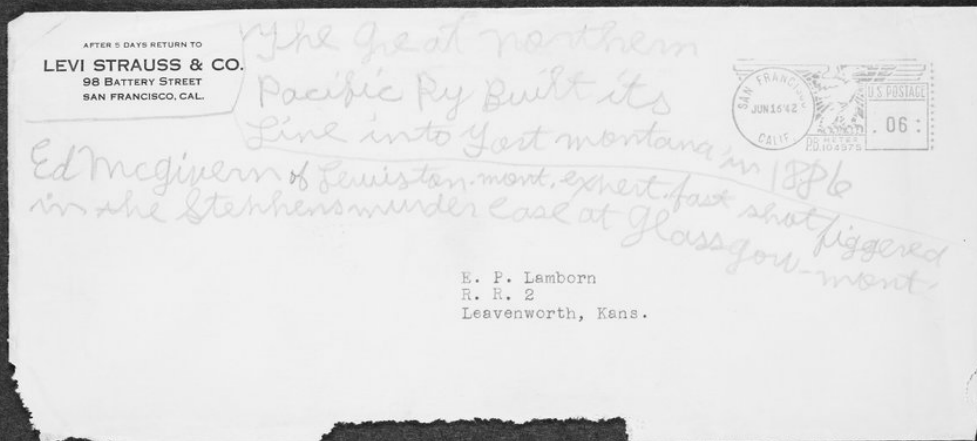 AFTER 5 DAYS RETURN TO
LEVI STRAUSS & CO.
98 BATTERY STREET
SAN FRANCISCO, CAL.
The Great northern
Pacific Ry Built its
Line into montana in 1886
Ed Mcgivern of Lewiston. mont. expert. fast shot figgered
in the Stephens murder case at Glassgow-mont-
SAN FRANCISCO
JUN 16 '42
CALIF.
U.S. POSTAGE
.06:
P.B. METER
E. P. Lamborn
R. R. 2
Leavenworth, Kans.